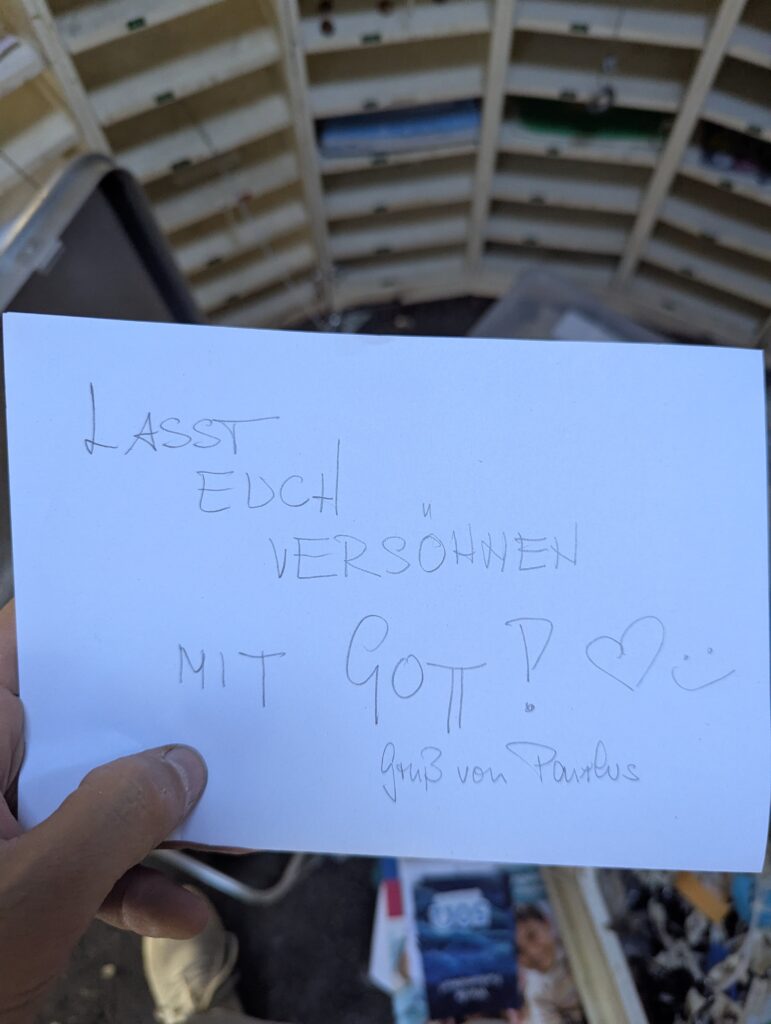 LASST
EUCH
VERSÖHNEN
MIT GOTT! ♡ :)
Gruß von Paulus